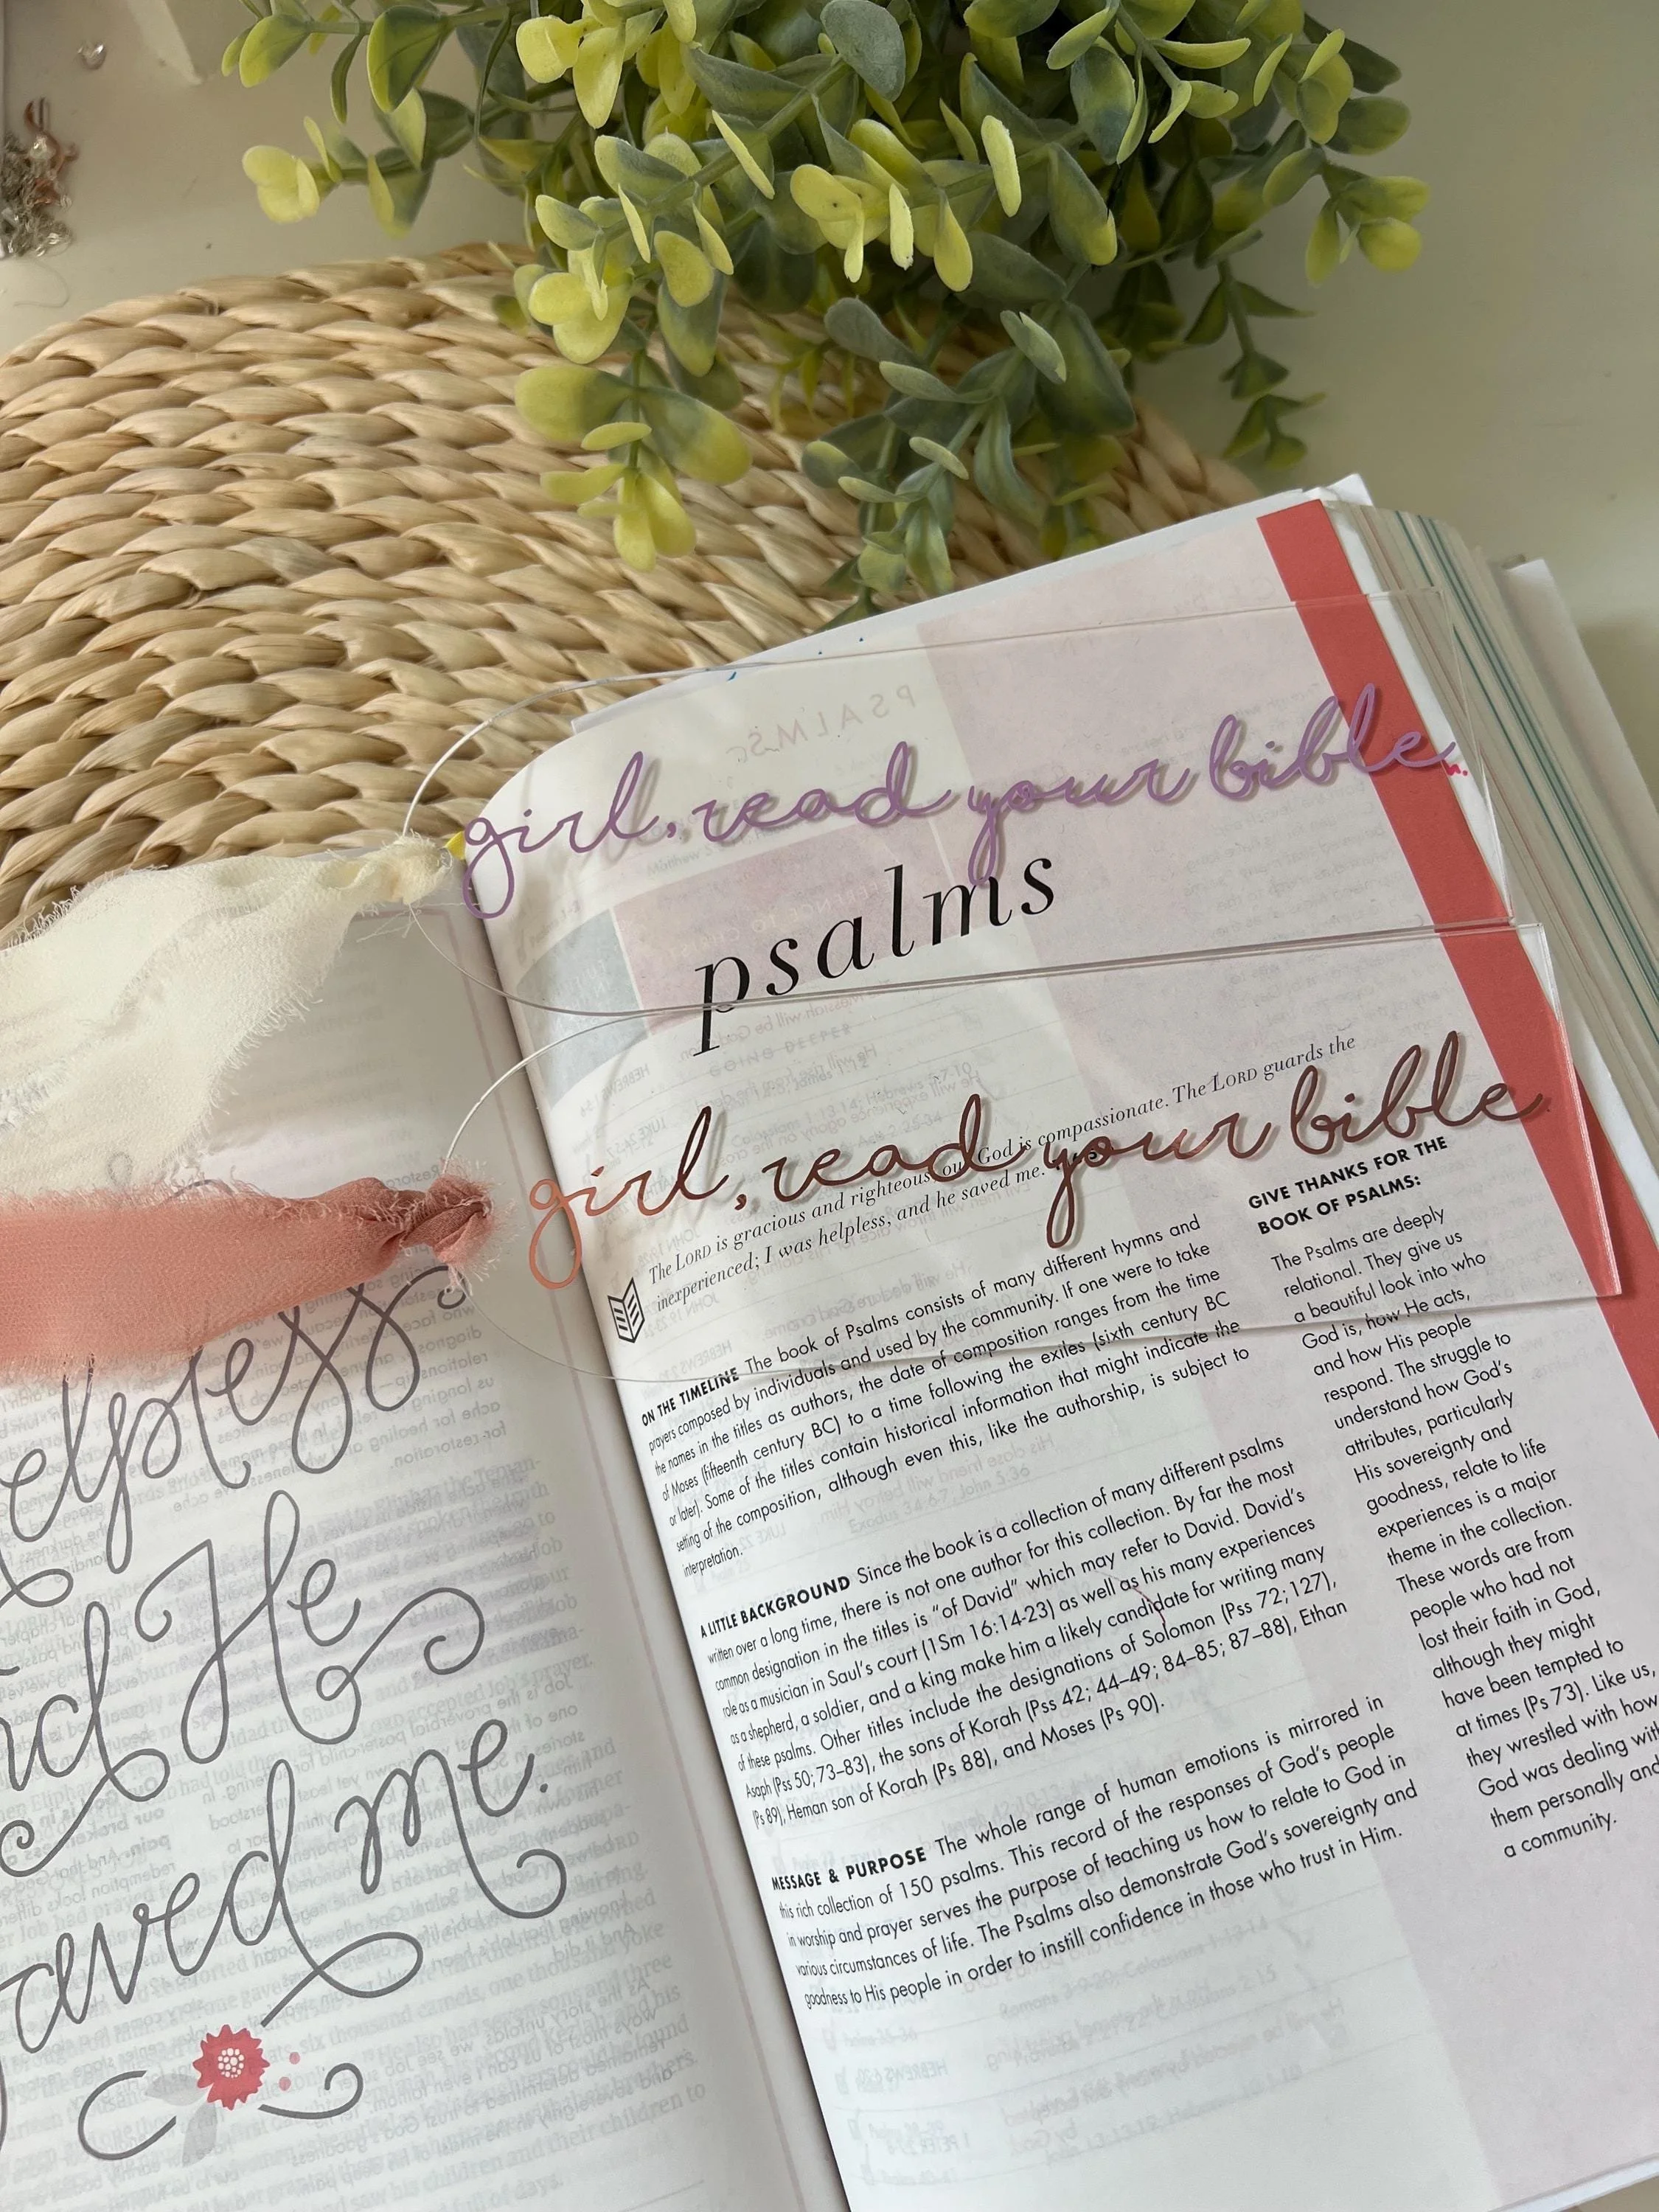 elpless
nd He
aved me.
girl, read your bible
psalms
girl, read your bible
The LORD is gracious and righteous; our God is compassionate. The LORD guards the
inexperienced; I was helpless, and he saved me.
ON THE TIMELINE The book of Psalms consists of many different hymns and
prayers composed by individuals and used by the community. If one were to take
the names in the titles as authors, the date of composition ranges from the time
of Moses (fifteenth century BC) to a time following the exiles (sixth century BC
or later). Some of the titles contain historical information that might indicate the
setting of the composition, although even this, like the authorship, is subject to
interpretation.
A LITTLE BACKGROUND Since the book is a collection of many different psalms
written over a long time, there is not one author for this collection. By far the most
common designation in the titles is "of David" which may refer to David. David's
role as a musician in Saul's court (1Sm 16:14-23) as well as his many experiences
as a shepherd, a soldier, and a king make him a likely candidate for writing many
of these psalms. Other titles include the designations of Solomon (Pss 72; 127),
Asaph (Pss 50; 73–83), the sons of Korah (Pss 42; 44–49; 84–85; 87–88), Ethan
(Ps 89), Heman son of Korah (Ps 88), and Moses (Ps 90).
MESSAGE & PURPOSE The whole range of human emotions is mirrored in
this rich collection of 150 psalms. This record of the responses of God's people
in worship and prayer serves the purpose of teaching us how to relate to God in
various circumstances of life. The Psalms also demonstrate God's sovereignty and
goodness to His people in order to instill confidence in those who trust in Him.
GIVE THANKS FOR THE
BOOK OF PSALMS:
The Psalms are deeply
relational. They give us
a beautiful look into who
God is, how He acts,
and how His people
respond. The struggle to
understand how God's
attributes, particularly
His sovereignty and
goodness, relate to life
experiences is a major
theme in the collection.
These words are from
people who had not
lost their faith in God,
although they might
have been tempted to
at times (Ps 73). Like us,
they wrestled with how
God was dealing with
them personally and
a community.